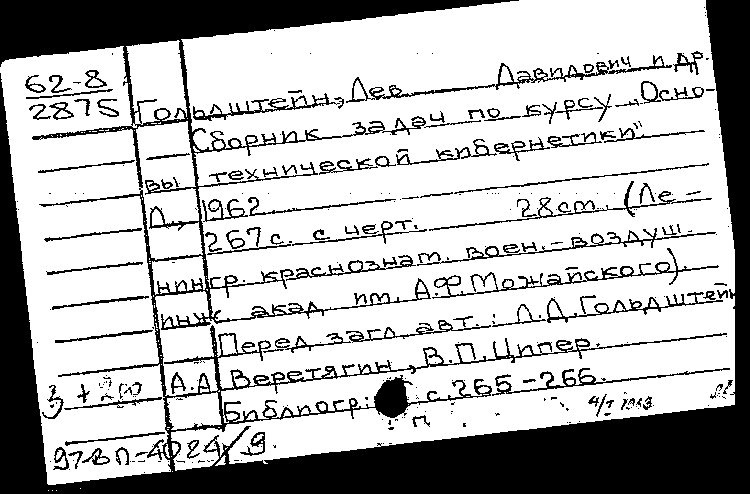 62-8
2875
Гольдштейн, Лев Давидович и др.
Сборник задач по курсу „Осно-
вы технической кибернетики".
Л., 1962.
267 с. с черт. 28 cm. (Ле-
нингр. краснознам. воен.-воздуш.
инж. акад. им. А.Ф. Можайского).
Перед загл. авт.: Л.Д. Гольдштейн
А.А. Веретягин, В.П. Ципер.
Библиогр: с. 265-266.
п
97-ВП-4024/9.